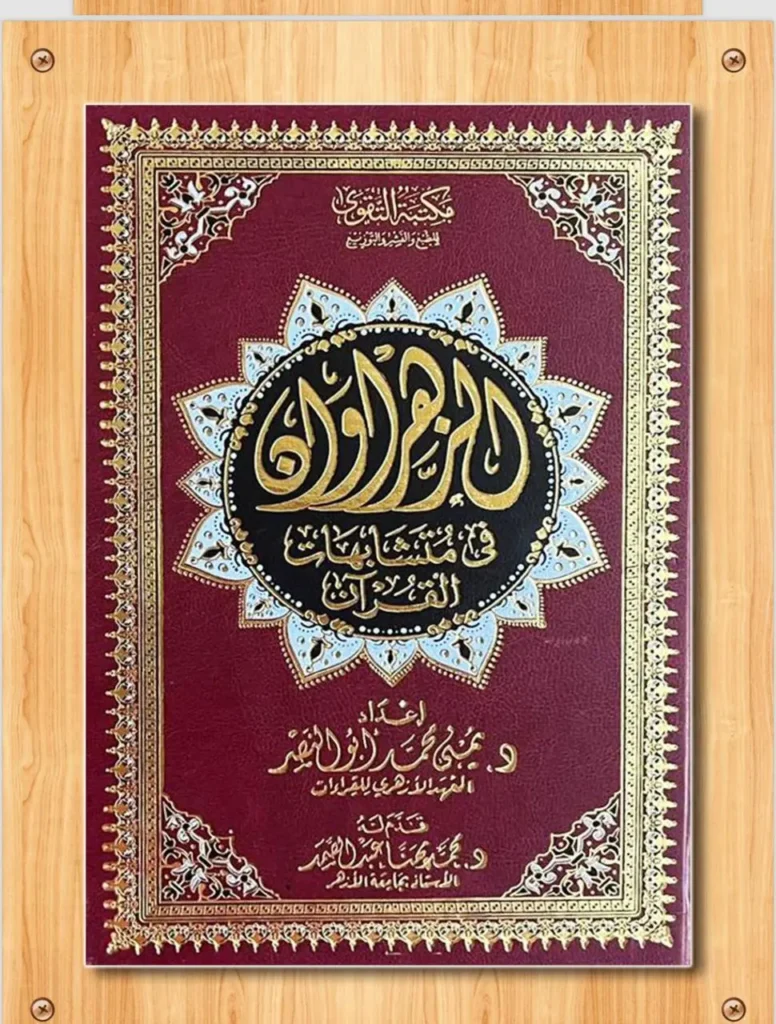 مكتبة التقوى
للطبع والنشر والتوزيع
الزهراوان
في متشابهات
القرآن
إعداد
د. يمنى محمد أبو النصر
المعهد الأزهري للقراءات
قدم له
د. محمد مهنا عبد الصمد
الأستاذ بجامعة الأزهر